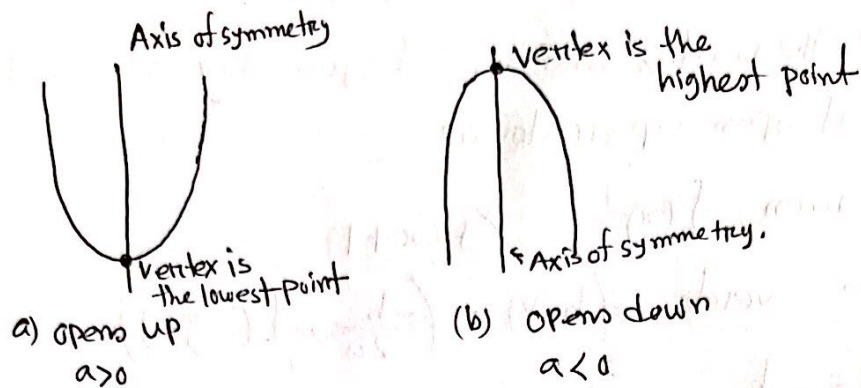 Axis of symmetry
vertex is
the lowest point
a) opens up
a>0
vertex is the
highest point
Axis of symmetry.
(b) opens down
a<0